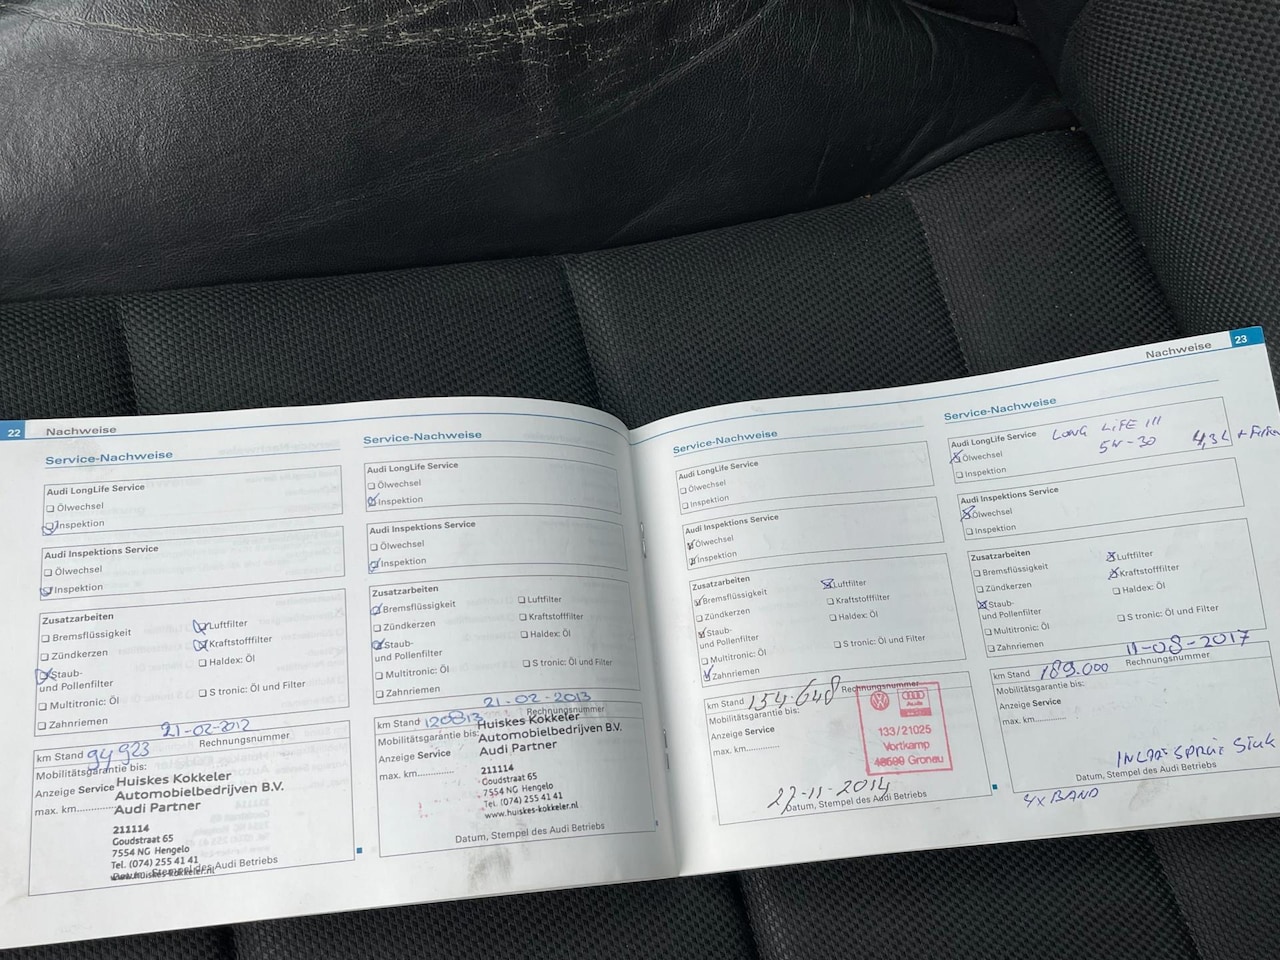 22 Nachweise
Service-Nachweise
Audi LongLife Service
Ölwechsel
Inspektion
Audi Inspektions Service
Ölwechsel
Inspektion
Zusatzarbeiten
Bremsflüssigkeit
Zündkerzen
Staub-
und Pollenfilter
Multitronic: Öl
Zahnriemen
Luftfilter
Kraftstofffilter
Haldex: Öl
S tronic: Öl und Filter
21-02-2012
km Stand 94923 Rechnungsnummer
Mobilitätsgarantie bis:
Anzeige Service
max. km............
Huiskes Kokkeler
Automobielbedrijven B.V.
Audi Partner
211114
Goudstraat 65
7554 NG Hengelo
Tel. (074) 255 41 41
www.huiskes-kokkeler.nl
Datum, Stempel des Audi Betriebs
Service-Nachweise
Audi LongLife Service
Ölwechsel
Inspektion
Audi Inspektions Service
Ölwechsel
Inspektion
Zusatzarbeiten
Bremsflüssigkeit
Zündkerzen
Staub-
und Pollenfilter
Multitronic: Öl
Zahnriemen
Luftfilter
Kraftstofffilter
Haldex: Öl
S tronic: Öl und Filter
21-02-2013
km Stand 120813 Rechnungsnummer
Mobilitätsgarantie bis:
Anzeige Service
max. km............
Huiskes Kokkeler
Automobielbedrijven B.V.
Audi Partner
211114
Goudstraat 65
7554 NG Hengelo
Tel. (074) 255 41 41
www.huiskes-kokkeler.nl
Datum, Stempel des Audi Betriebs
Nachweise 23
Service-Nachweise
Audi LongLife Service
Ölwechsel
Inspektion
Audi Inspektions Service
Ölwechsel
Inspektion
Zusatzarbeiten
Bremsflüssigkeit
Zündkerzen
Staub-
und Pollenfilter
Multitronic: Öl
Zahnriemen
Luftfilter
Kraftstofffilter
Haldex: Öl
S tronic: Öl und Filter
km Stand 154.648 Rechnungsnummer
Mobilitätsgarantie bis:
Anzeige Service
max. km............
Audi
133/21025
Vortkamp
48599 Gronau
22-11-2014
Datum, Stempel des Audi Betriebs
Service-Nachweise
Audi LongLife Service LONG LIFE III
5W-30 4,3L +
Ölwechsel
Inspektion
Audi Inspektions Service
Ölwechsel
Inspektion
Zusatzarbeiten
Bremsflüssigkeit
Zündkerzen
Staub-
und Pollenfilter
Multitronic: Öl
Zahnriemen
Luftfilter
Kraftstofffilter
Haldex: Öl
S tronic: Öl und Filter
11-08-2017
km Stand 189.000 Rechnungsnummer
Mobilitätsgarantie bis:
Anzeige Service
max. km............
Datum, Stempel des Audi Betriebs
4x BAND